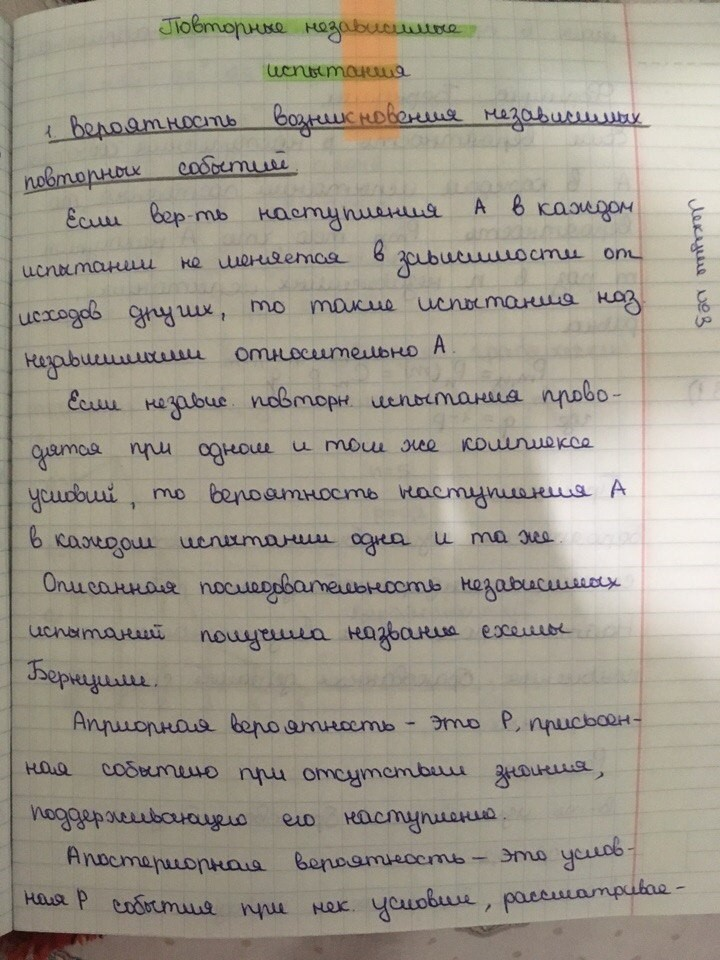 Повторные независимые
испытания
1. Вероятность возникновения независимых
повторных событий.
Если вер-ть наступления А в каждом
испытании не меняется в зависимости от
исходов других, то такие испытания наз.
независимыми относительно А.
Если независ. повторн. испытания прово-
дятся при одном и том же комплексе
условий, то вероятность наступления А
в каждом испытании одна и та же.
Описанная последовательность независимых
испытаний получила название схемы
Бернулли.
Априорная вероятность – это Р, присвоен-
ная событию при отсутствии знания,
поддерживающего его наступление.
Апостериорная вероятность – это услов-
ная Р события при нек. условии, рассматривае-
Лекция №3